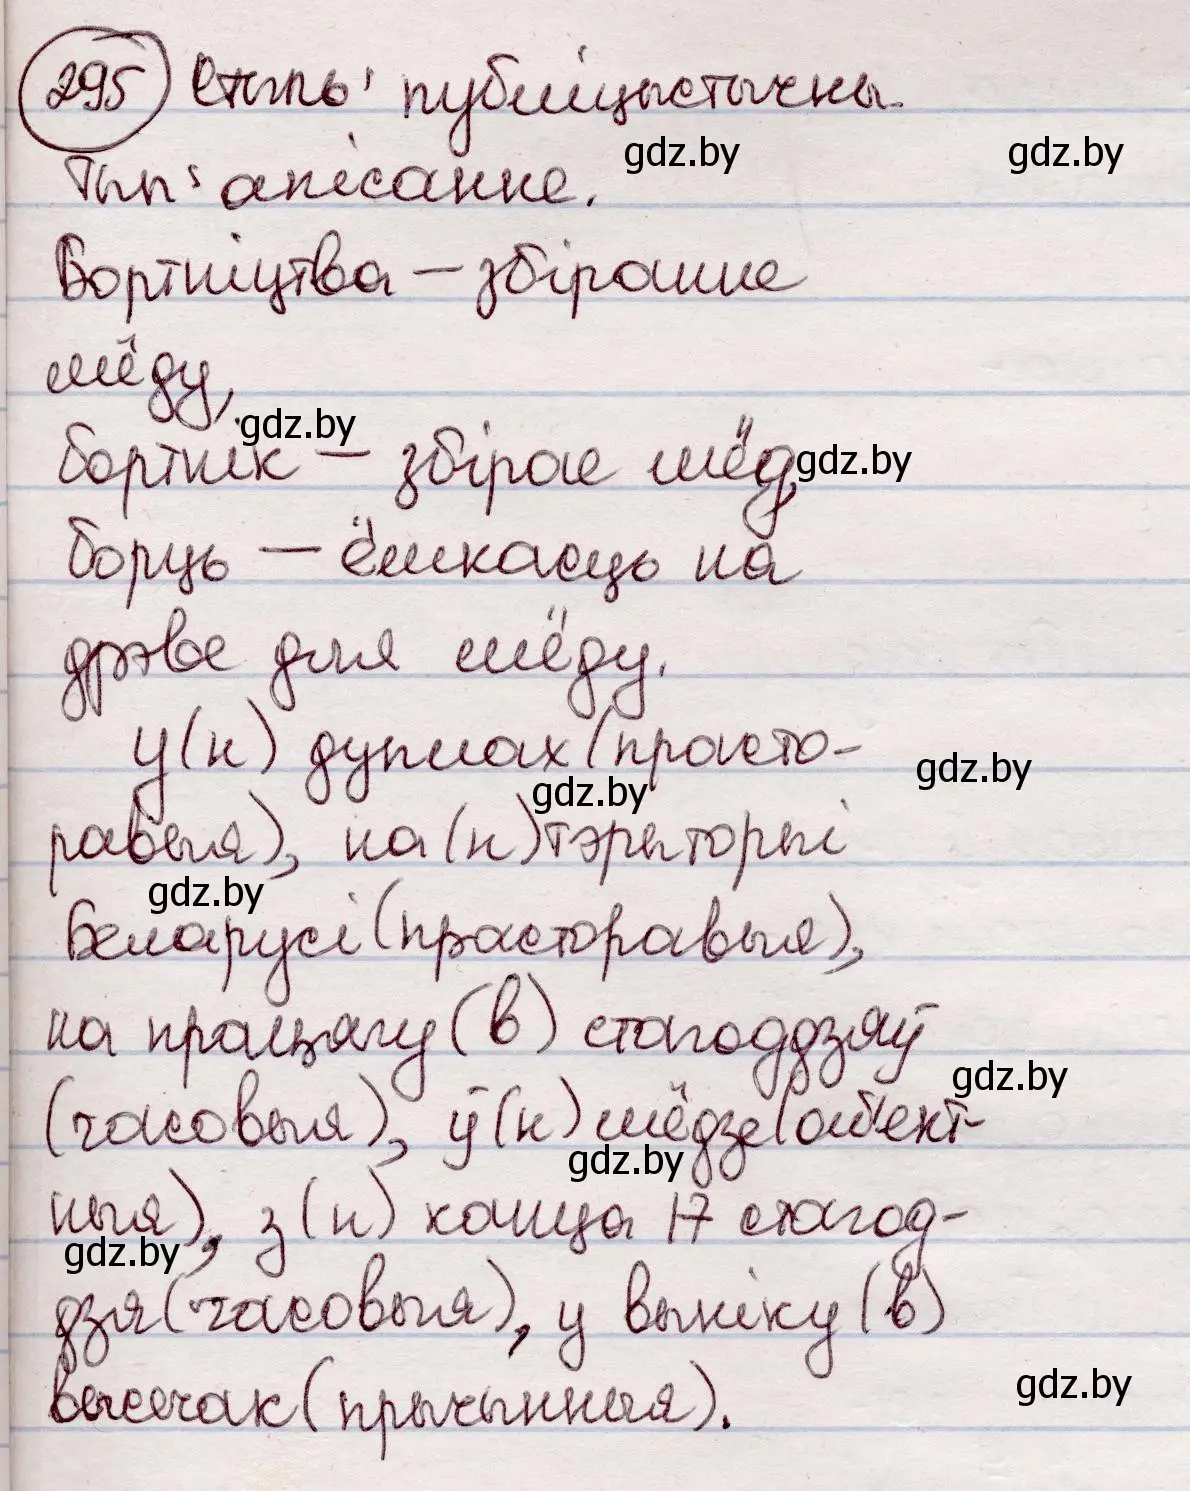 295 Стыль: публіцыстычны.
gdz.by gdz.by
Тып: апісанне.
Бортніцтва – збіранне
мёду,
gdz.by
бортнік – збірае мёд,
gdz.by
борць – ёмкасць на
дрэве для мёду.
у(н) дуплах (прасто-
gdz.by
gdz.by
равыя), на(н) тэрыторыі
gdz.by
Беларусі (прасторавыя),
на працягу (в) стагоддзяў
gdz.by
(часовыя), ў(н) мёдзе (аб'ект-
gdz.by
ныя), з(н) канца 17 стагод-
gdz.by
дзя (часовыя), у выніку (в)
gdz.by
высечак (прычынныя).